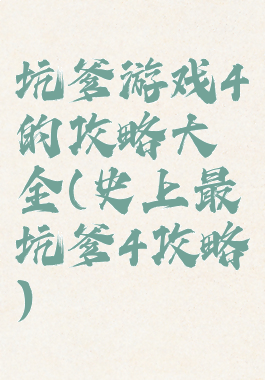 坑爹游戏4
的攻略大
全(史上最
坑爹4攻略
)